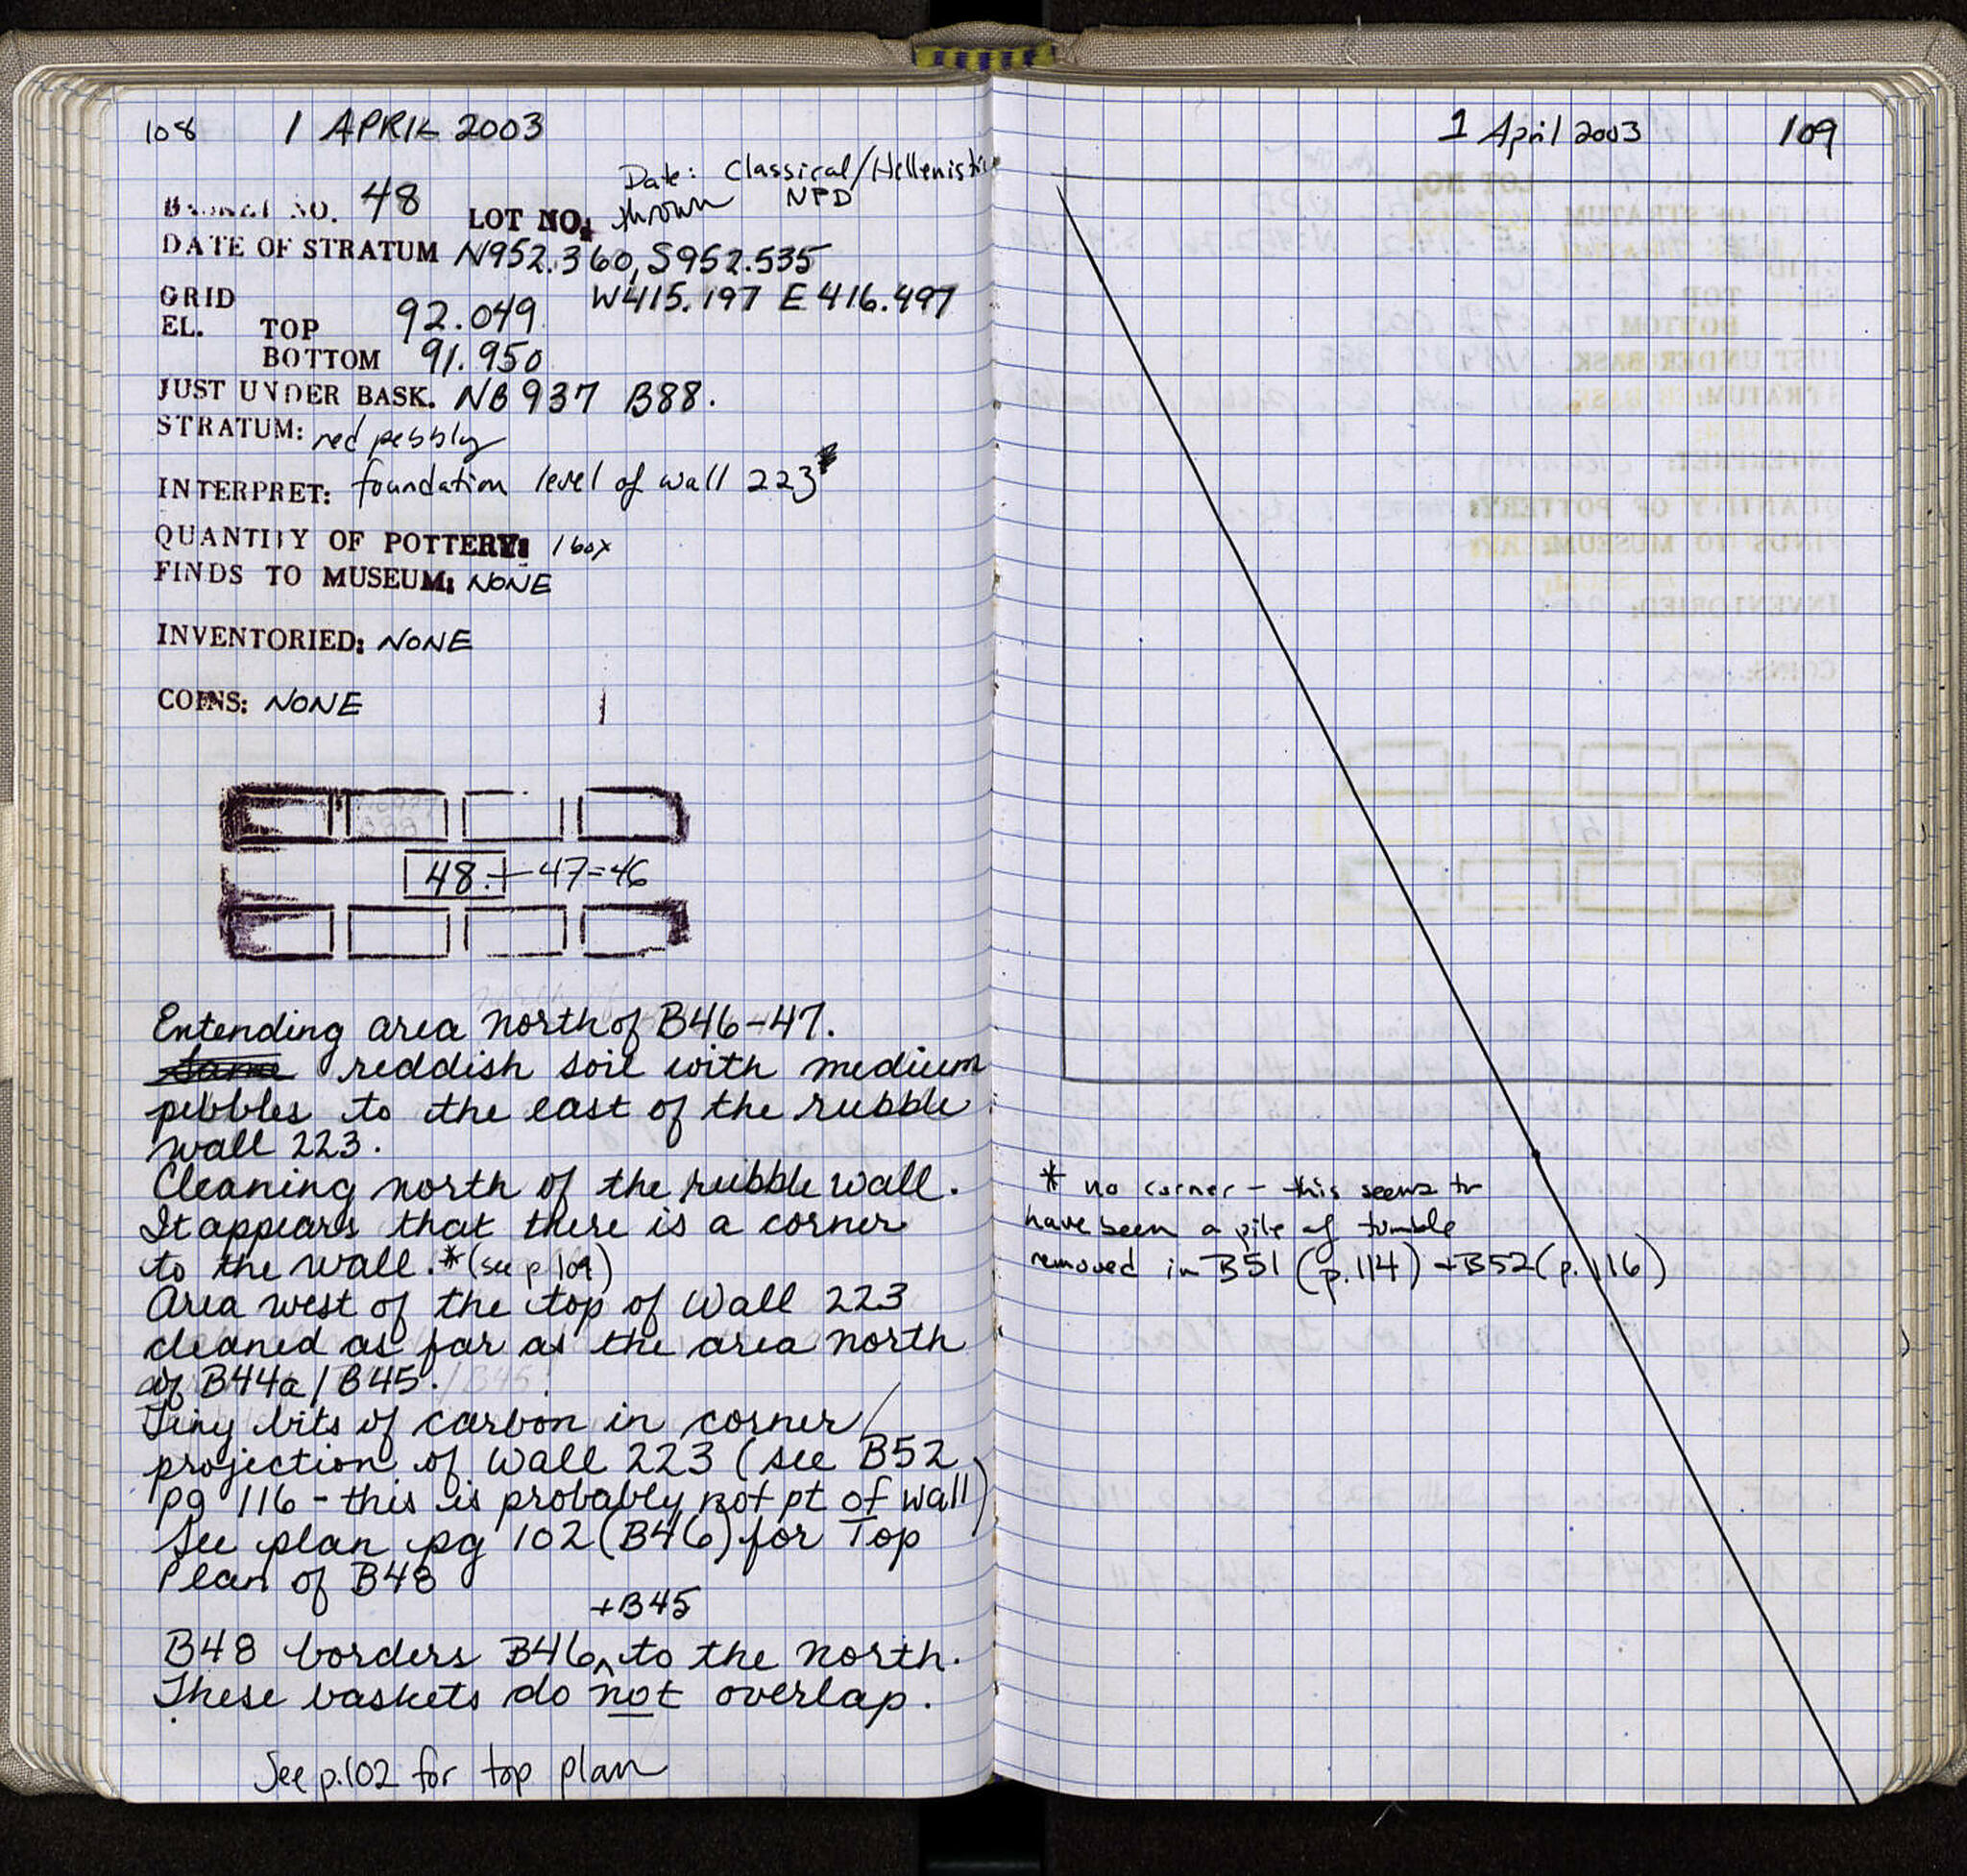 108 1 APRIL 2003
Date: Classical/Hellenistic
BASKET NO. 48 LOT NO: thrown NPD
DATE OF STRATUM N952.360, S952.535
GRID W415.197 E416.497
EL. TOP 92.049
BOTTOM 91.950
JUST UNDER BASK. NB937 B88.
STRATUM: red pebbly
INTERPRET: foundation level of wall 223*
QUANTITY OF POTTERY: 1 box
FINDS TO MUSEUM: NONE
INVENTORIED: NONE
COINS: NONE
48 47=46
Entending area north of B46-47.
reddish soil with medium
pebbles to the east of the rubble
wall 223.
Cleaning north of the rubble wall.
It appears that there is a corner
to the wall.*(see p 109)
Area west of the top of Wall 223
cleaned as far as the area north
of B44a/B45.
Tiny bits of carbon in corner/
projection of Wall 223 (see B52
pg 116 - this is probably not pt of wall)
See plan pg 102 (B46) for Top
Plan of B48
+B45
B48 borders B46^ to the north.
These baskets do not overlap.
See p.102 for top plan
1 April 2003 109
* no corner - this seems to
have been a pile of tumble
removed in B51 (p.114) + B52 (p.116)